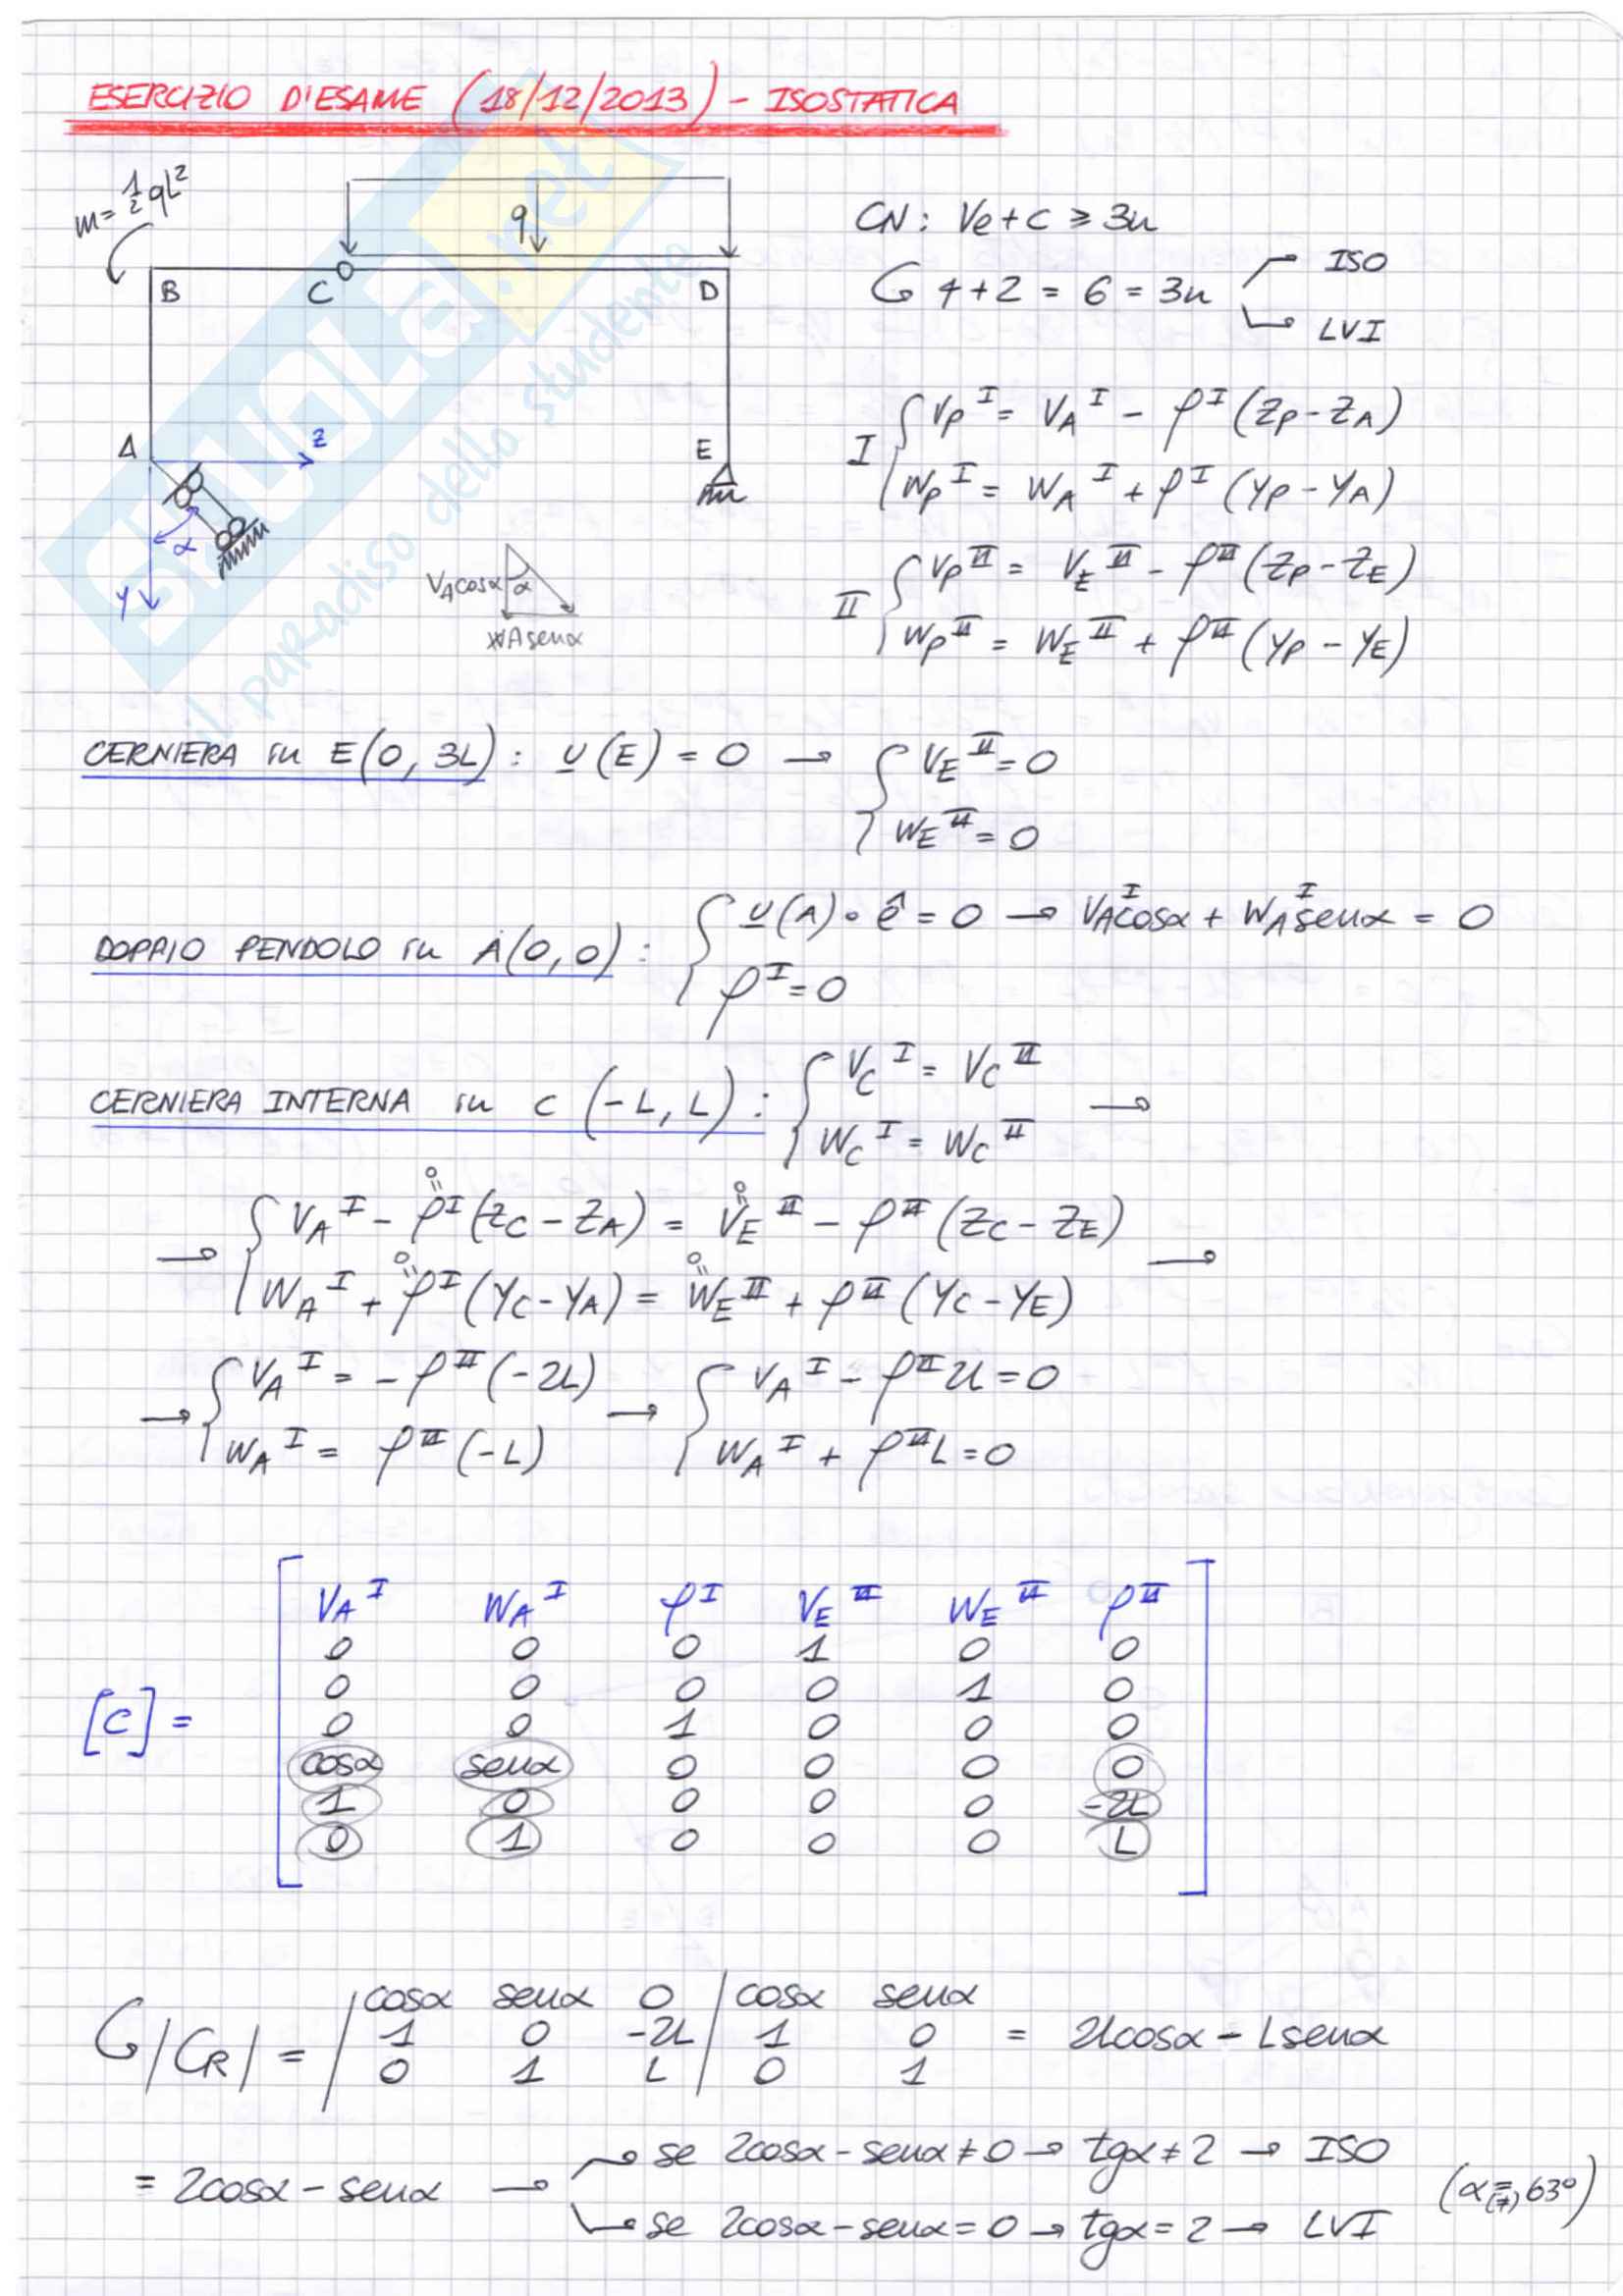 ESERCIZIO D'ESAME (18/12/2013) - ISOSTATICA
m = 1/2 qL²
q
B C D
A z E
α
y
V_A cosα α
W_A senα
CN: Ve + C ≥ 3n
4 + 2 = 6 = 3n
ISO
LVI
I { V_P^I = V_A^I - φ^I (Z_P - Z_A)
W_P^I = W_A^I + φ^I (Y_P - Y_A)
II { V_P^II = V_E^II - φ^II (Z_P - Z_E)
W_P^II = W_E^II + φ^II (Y_P - Y_E)
CERNIERA in E(0, 3L): u(E) = 0 → { V_E^II = 0
W_E^II = 0
DOPPIO PENDOLO in A(0,0): { u(A) • ê = 0 → V_A^I cosα + W_A^I senα = 0
φ^I = 0
CERNIERA INTERNA in C (-L, L): { V_C^I = V_C^II →
W_C^I = W_C^II
0 0
→ { V_A^I - φ^I (Z_C - Z_A) = V_E^II - φ^II (Z_C - Z_E) →
0 0
W_A^I + φ^I (Y_C - Y_A) = W_E^II + φ^II (Y_C - Y_E)
→ { V_A^I = - φ^II (-2L) → { V_A^I - φ^II 2L = 0
W_A^I = φ^II (-L) W_A^I + φ^II L = 0
V_A^I W_A^I φ^I V_E^II W_E^II φ^II
0 0 0 1 0 0
0 0 0 0 1 0
[C] = 0 0 1 0 0 0
cosα senα 0 0 0 0
1 0 0 0 0 -2L
0 1 0 0 0 L
cosα senα 0 | cosα senα
|C_R| = | 1 0 -2L | 1 0 = 2Lcosα - Lsenα
0 1 L | 0 1
= 2cosα - senα → se 2cosα - senα ≠ 0 → tgα ≠ 2 → ISO (α =(≠) 63°)
se 2cosα - senα = 0 → tgα = 2 → LVI
skuola.net
il paradiso dello studente